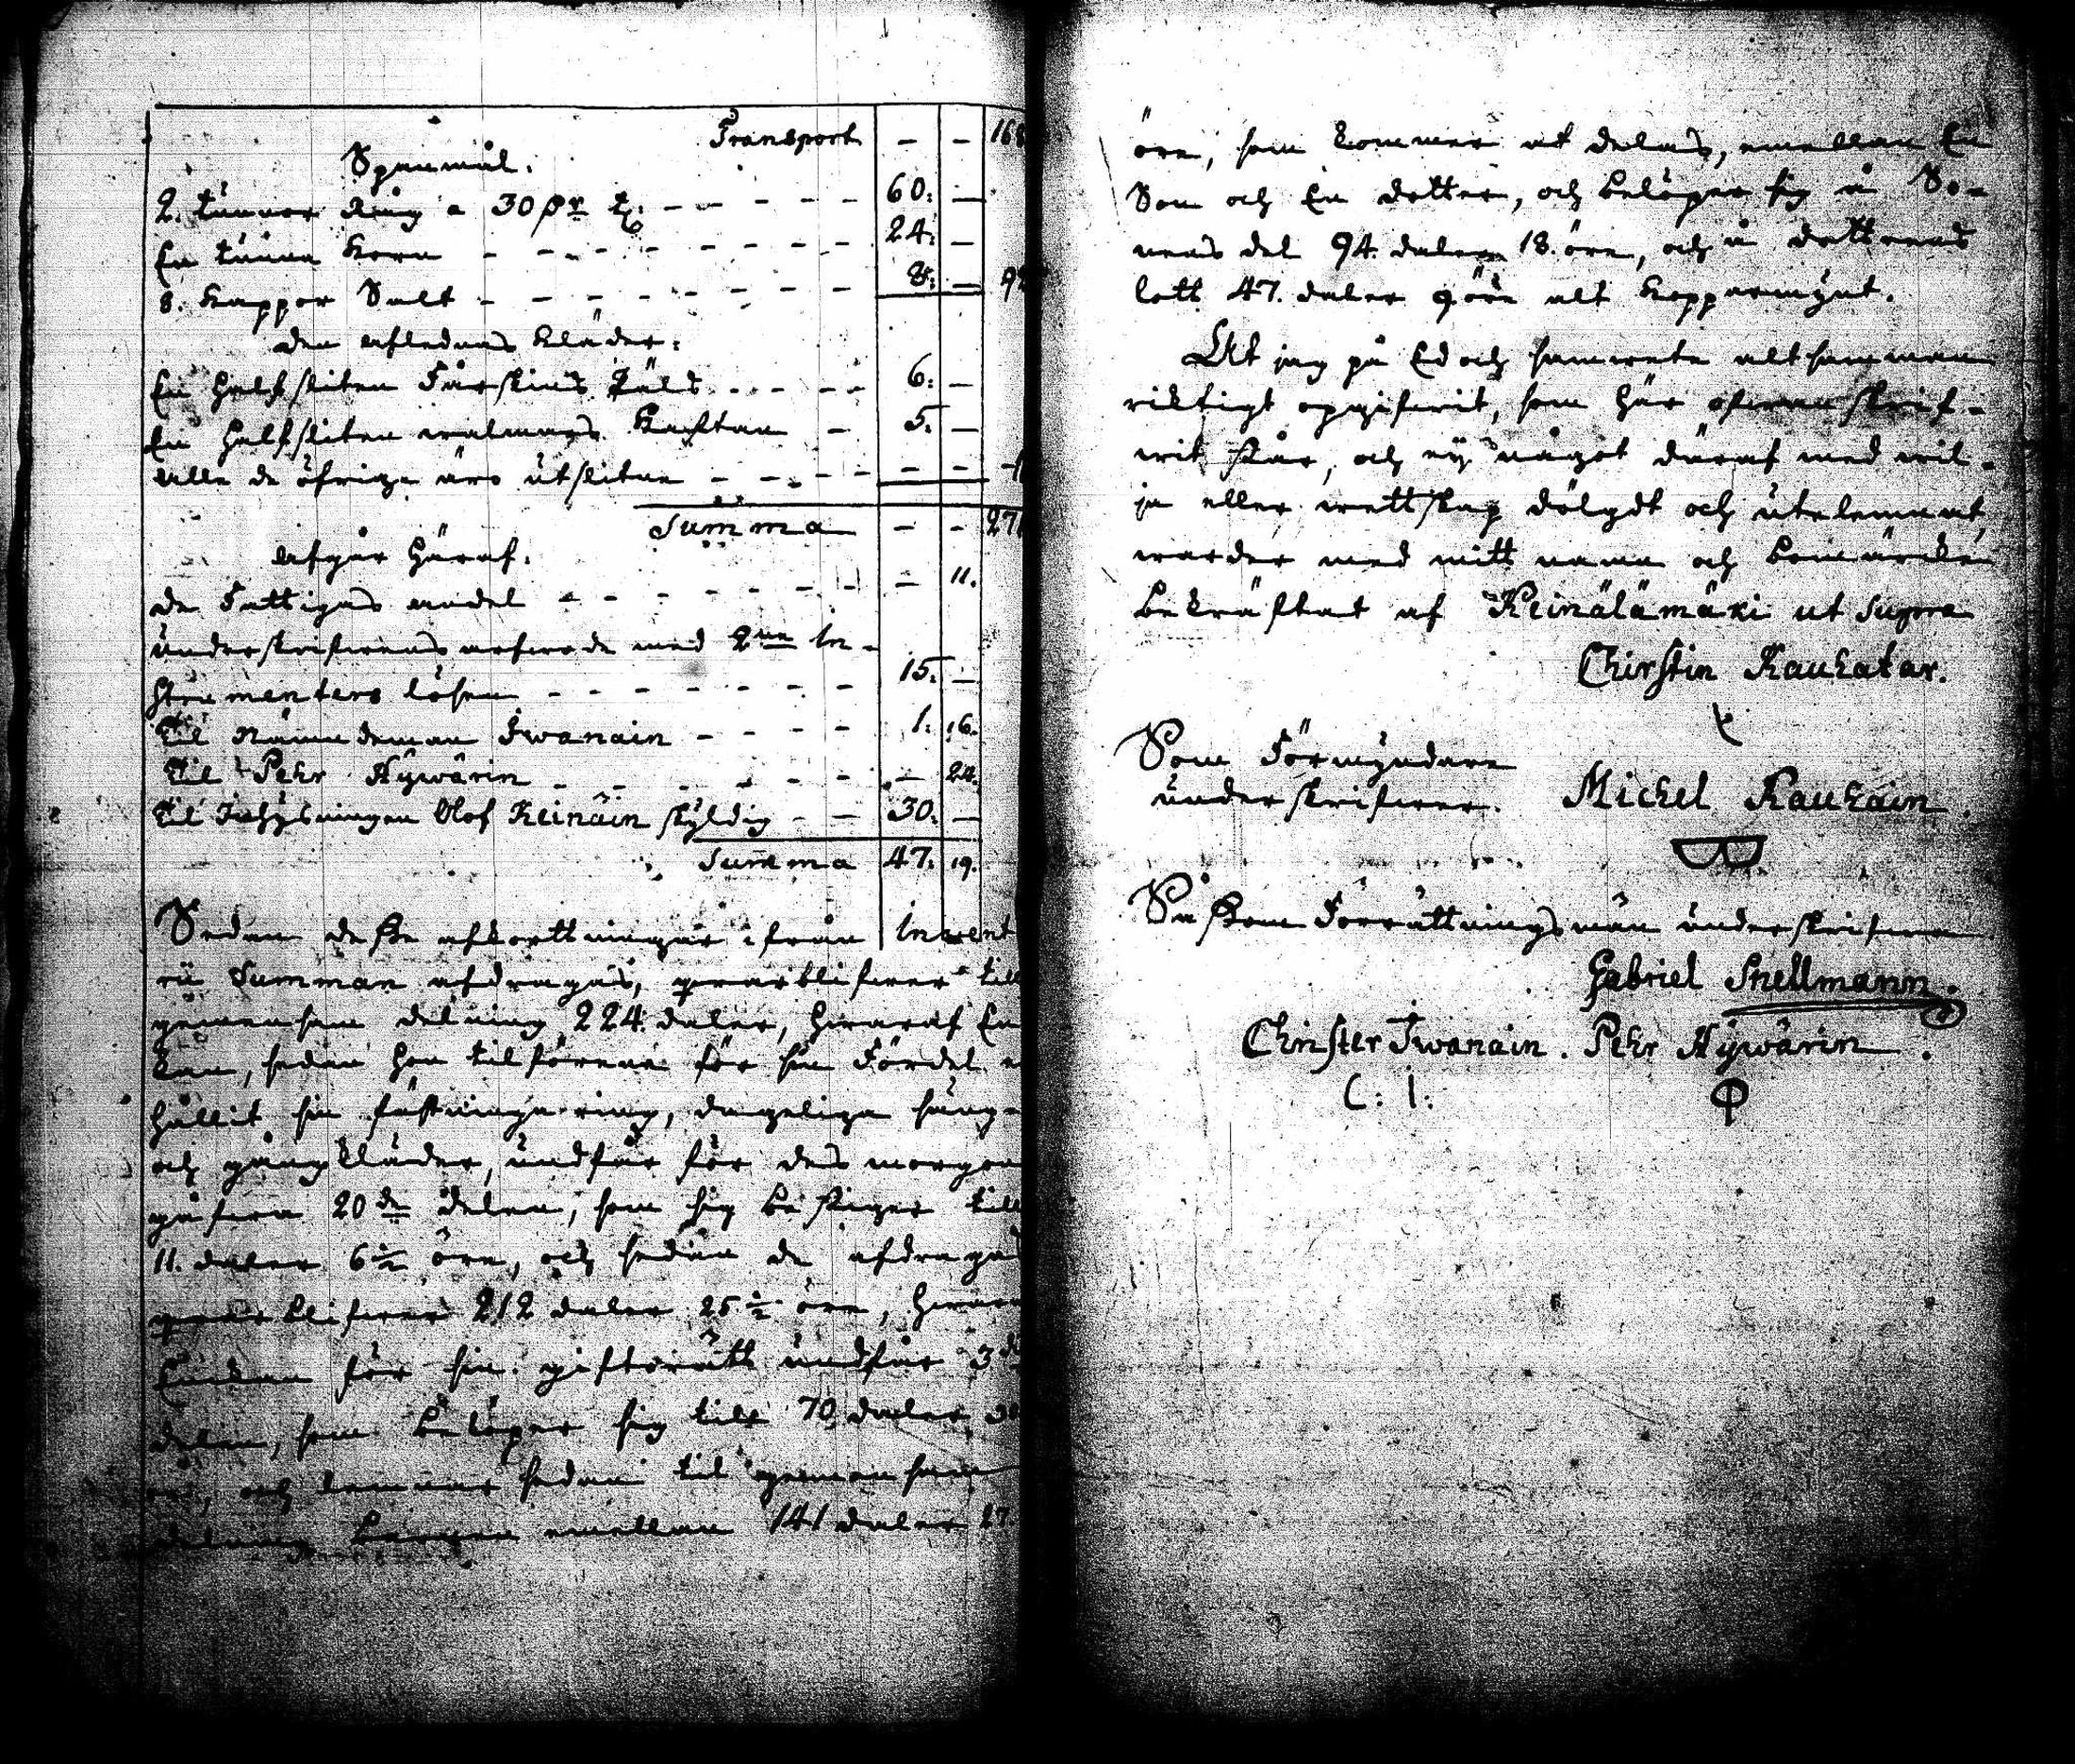 Transport — — 168
Spanmål.
2. tunnor Råg a 30 pr tß. 60. —
En tunna Korn 24. —
8. kappor Salt 8. — 92
den aflednas kläder:
En half sliten Fårskins Päls 6. —
En half sliten walmars Kaftan 5. —
alla de öfrige äro utslitne — —
Summa — — 271
Afgår häraf.
de Fattigas andel — 11.
underskrifwarens arfwode med 2ne In-
strumenters lösen 15. —
Til Nämndeman Iwanain 1. 16.
Til Pehr Hÿwärin — 24.
Til Inhysningen Olof Keinäin skyldig 30. —
Summa 47. 19.
Sedan desse afkortningar ifrån Invent
rii Summan afdragas, qwarblifwer till
gemensam delning 224 daler, hwaraf En
kan, sedan hon tilförene för sin Fördel
hållit sin fästninge ring, dageliga säng-
och gångkläder, undfår för des morgon
gåfwa 20de delen, som sig bestiger till
11. daler 6½ öre, och sedan de afdragas
qwarblifwer 212 daler 25½ öre, hwaraf
Enkan för sin giftorätt undfår 3de
delen, som belöper sig till 70 daler
och lemnar sedan til gemensam
delning barnen emellan 141 daler 27.
öre, som kommer at delas, emellan En
Son och En dotter, och belöper sig å So-
nens del 94. daler 18. öre, och å dottrens
lott 47. daler 9 öre alt Koppermynt.
At jag på Ed och samwete altsamman
riktigt opgifwit, som här ofwanskrif-
wit står, och ej något däraf med wil-
ja eller wettskap dölgdt och utelemnat,
warder med mitt namn och bomärcke
bekräftat af Keinälämäki ut supra
Chirstin Kaukatar.
Som Förmyndare
underskrifwer. Michel Kaukain
Såsom Förrättningsmän underskrifwa
Gabriel Snellmann.
Christer Iwanain. Pehr Hÿwärin.
C: I: